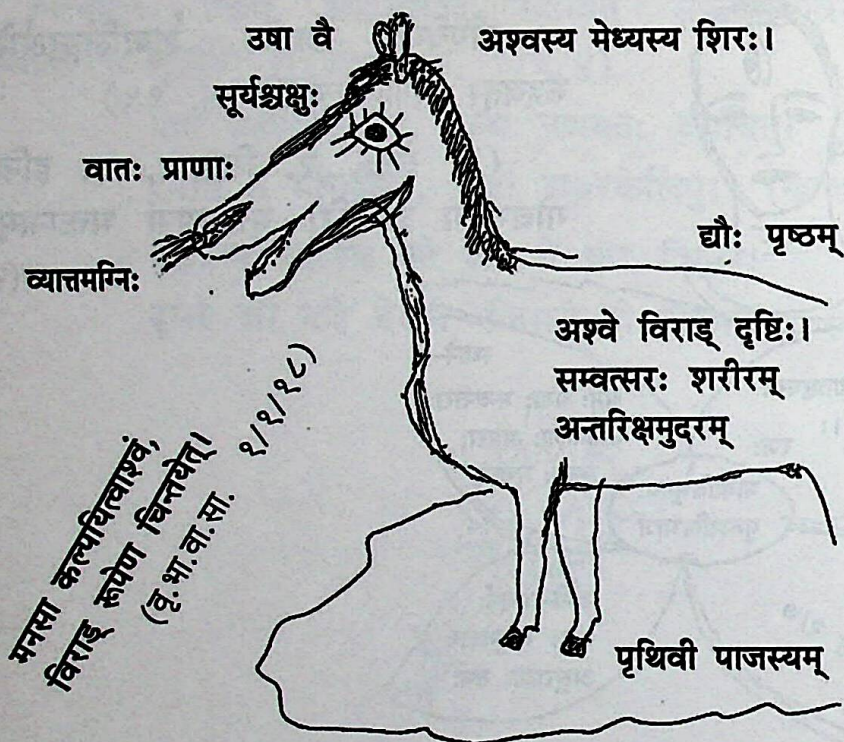 उषा वै अश्वस्य मेध्यस्य शिरः।
सूर्यश्चक्षुः
वातः प्राणाः
व्यात्तमग्निः
द्यौः पृष्ठम्
अश्वे विराड् दृष्टिः।
सम्वत्सरः शरीरम्
अन्तरिक्षमुदरम्
मनसा कल्पयित्वाश्वं,
विराड् रूपेण चिन्तयेत्।
(वृ.भा.वा.सा. १/१/१८)
पृथिवी पाजस्यम्